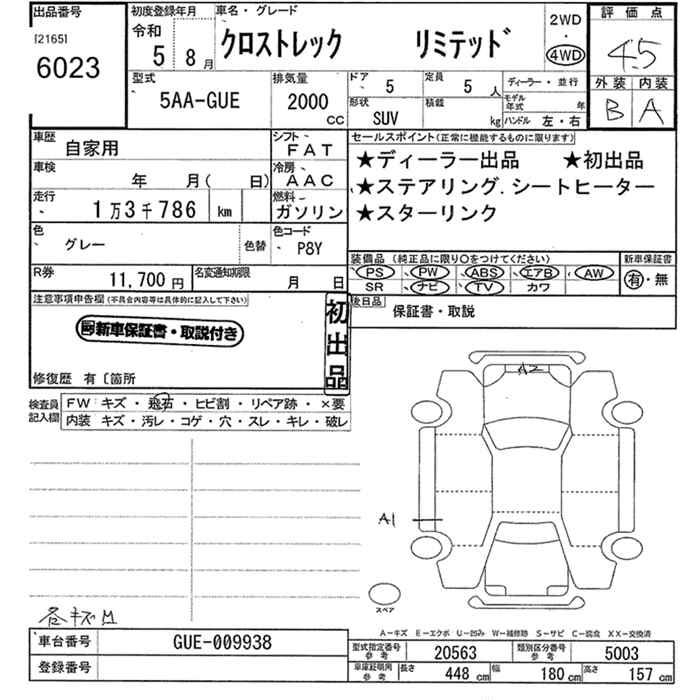 出品番号
[2165]
6023
初度登録年月
令和
5 8月
車名・グレード
クロストレック リミテッド
2WD
・
4WD
評価点
4.5
外装 内装
B A
型式
5AA-GUE
排気量
2000
cc
ドア 5
定員 5 人
形状 SUV
積載 kg
ディーラー・並行
モデル年式 年
ハンドル 左・右
車歴 自家用
シフト FAT
車検 年 月( 日)
冷房 AAC
走行 1万3千786 km
燃料 ガソリン
色 グレー 色替
色コード P8Y
R券 11,700円
名変通知期限 月 日
セールスポイント(正常に機能するものに限ります)
★ディーラー出品 ★初出品
★ステアリング.シートヒーター
★スターリンク
装備品(純正品に限り○をつけてください)
PS PW ABS エアB AW
SR ナビ TV カワ
新車保証書
有・無
後日品 保証書・取説
注意事項申告欄(不具合内容等は具体的に記入して下さい)
新車保証書・取説付き
初出品
修復歴 有〔箇所
検査員記入欄
FW キズ・飛石・ヒビ割・リペア跡・×要
内装 キズ・汚レ・コゲ・穴・スレ・キレ・破レ
A2
A1
スペア
各キズ
A-キズ E-エクボ U-凹み W-補修跡 S-サビ C-腐食 XX-交換済
車台番号 GUE-009938
登録番号
型式指定番号 参考 20563
類別区分番号 参考 5003
車庫証明用 参考 長さ 448 cm 幅 180 cm 高さ 157 cm